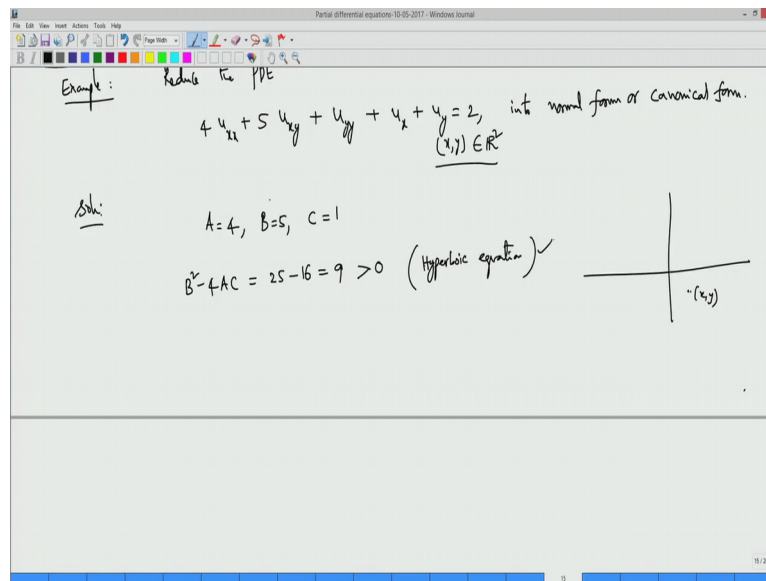 Partial differential equations-10-05-2017 - Windows Journal
File Edit View Insert Actions Tools Help
Page Width
B I
Example: Reduce the PDE
4 u_xx + 5 u_xy + u_yy + u_x + u_y = 2, into normal form or canonical form.
(x,y) ∈ ℝ²
Soln:
A=4, B=5, C=1
B²-4AC = 25-16 = 9 >0 (Hyperbolic equation) ✓
(x,y)
15